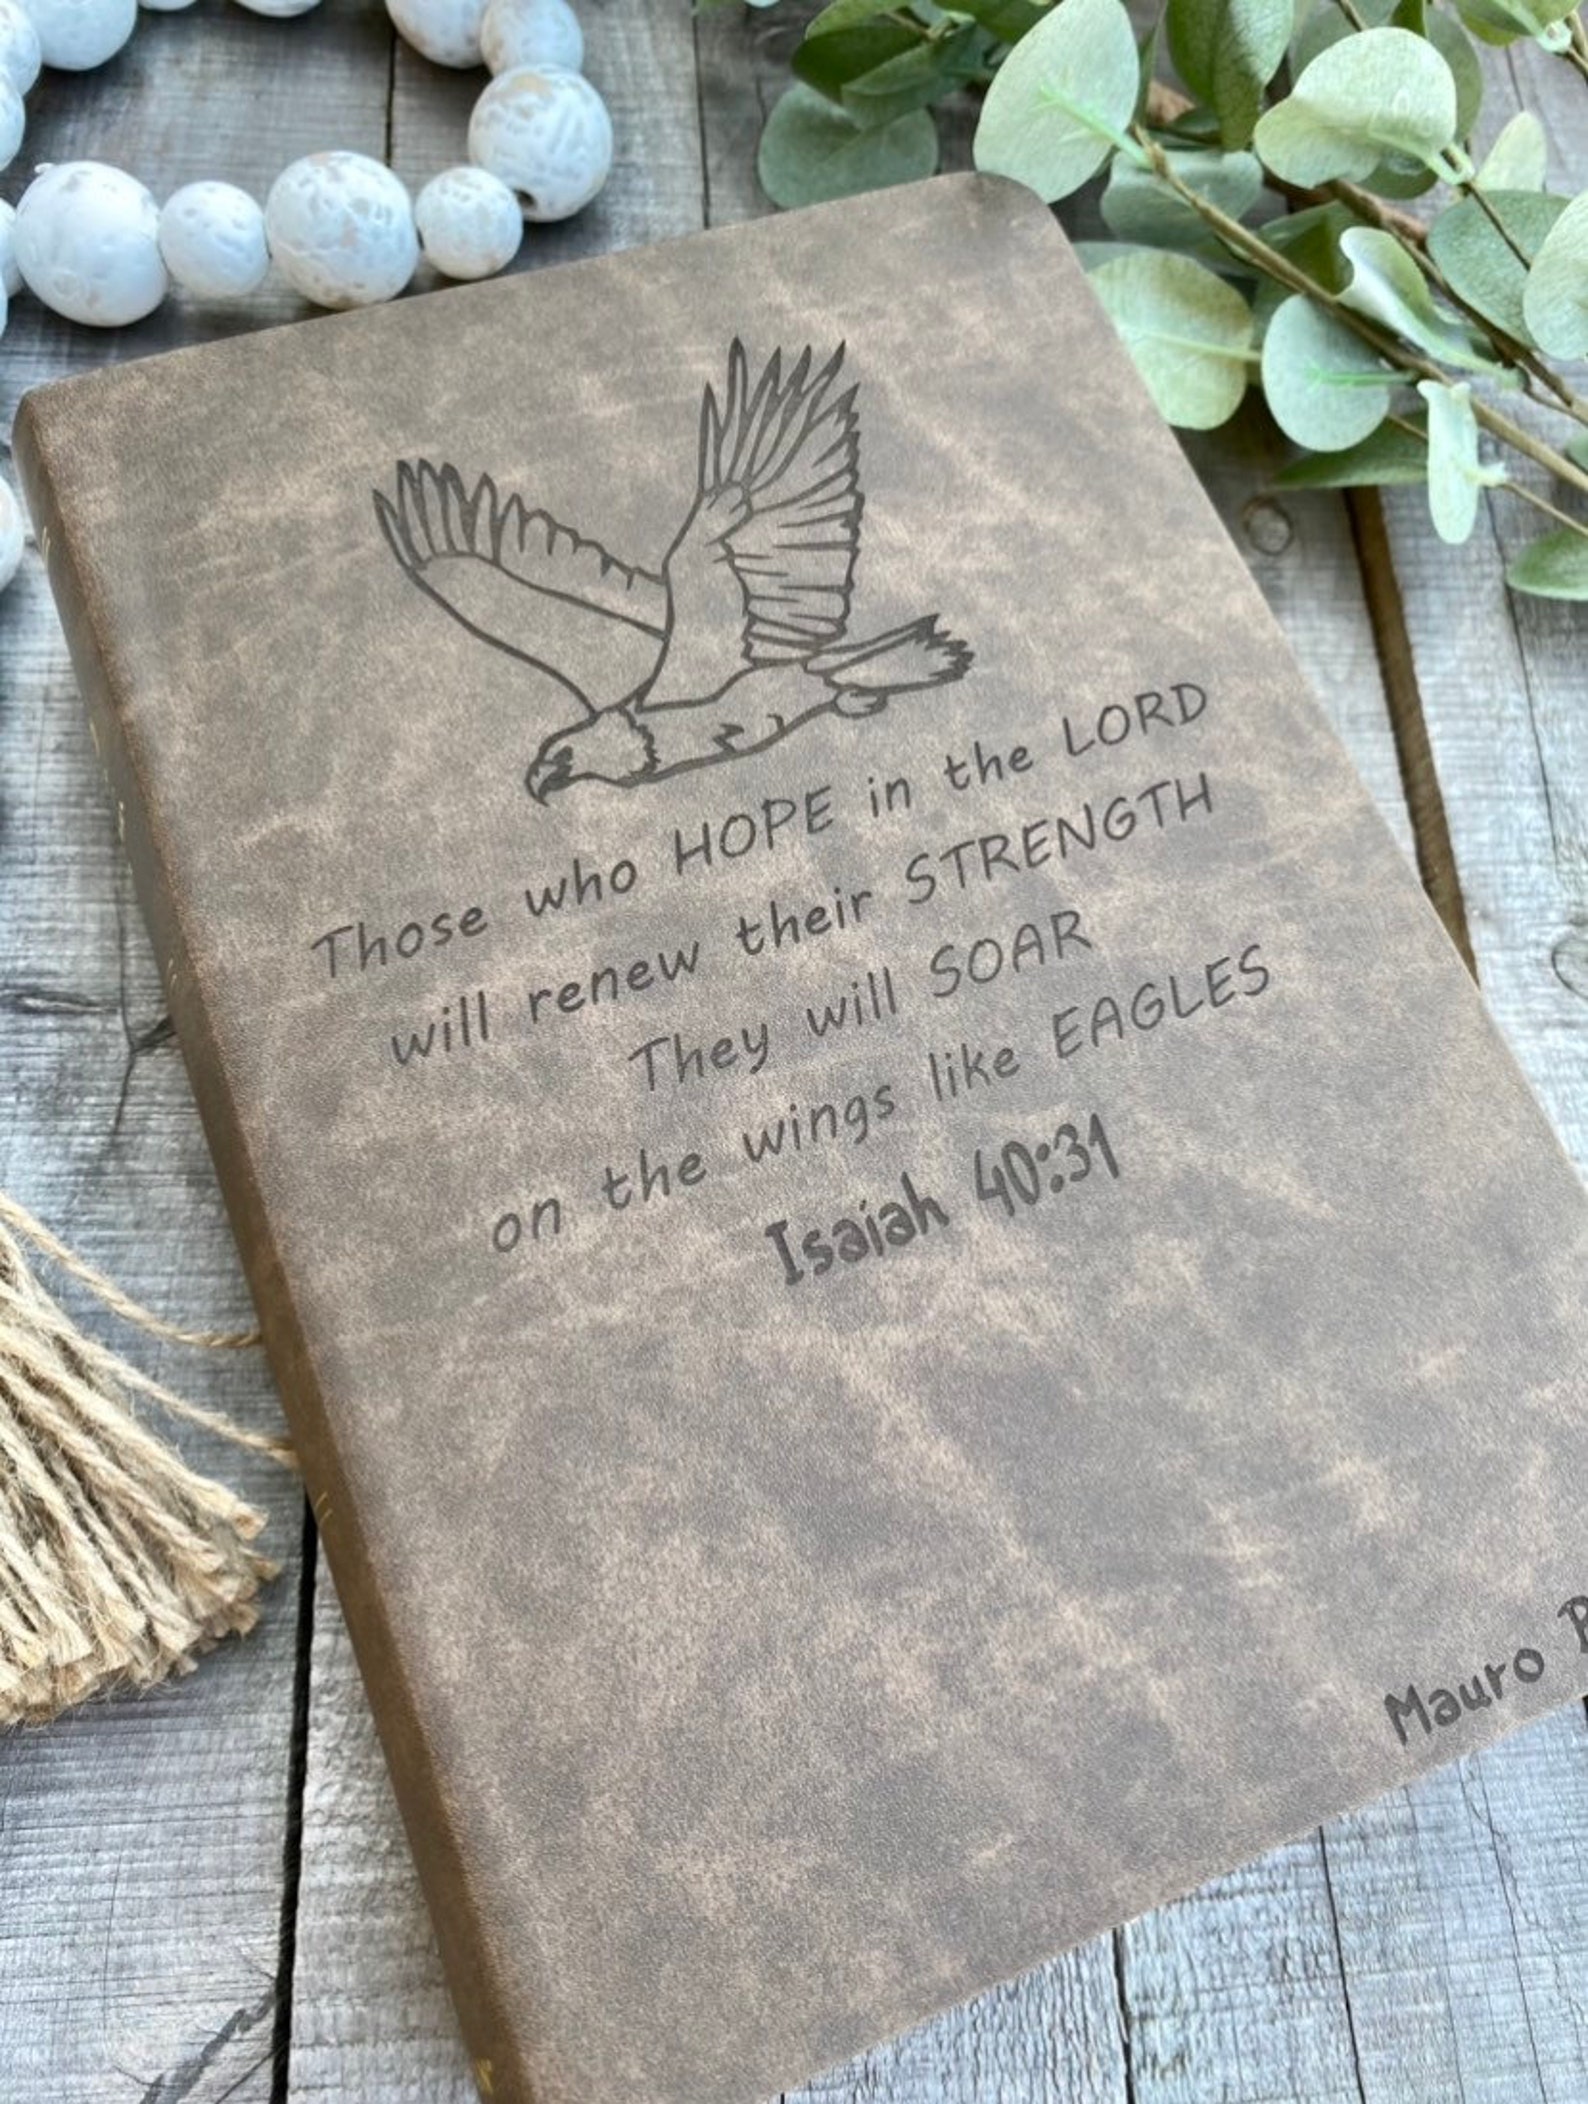 Those who HOPE in the LORD
will renew their STRENGTH
They will SOAR
on the wings like EAGLES
Isaiah 40:31
Mauro